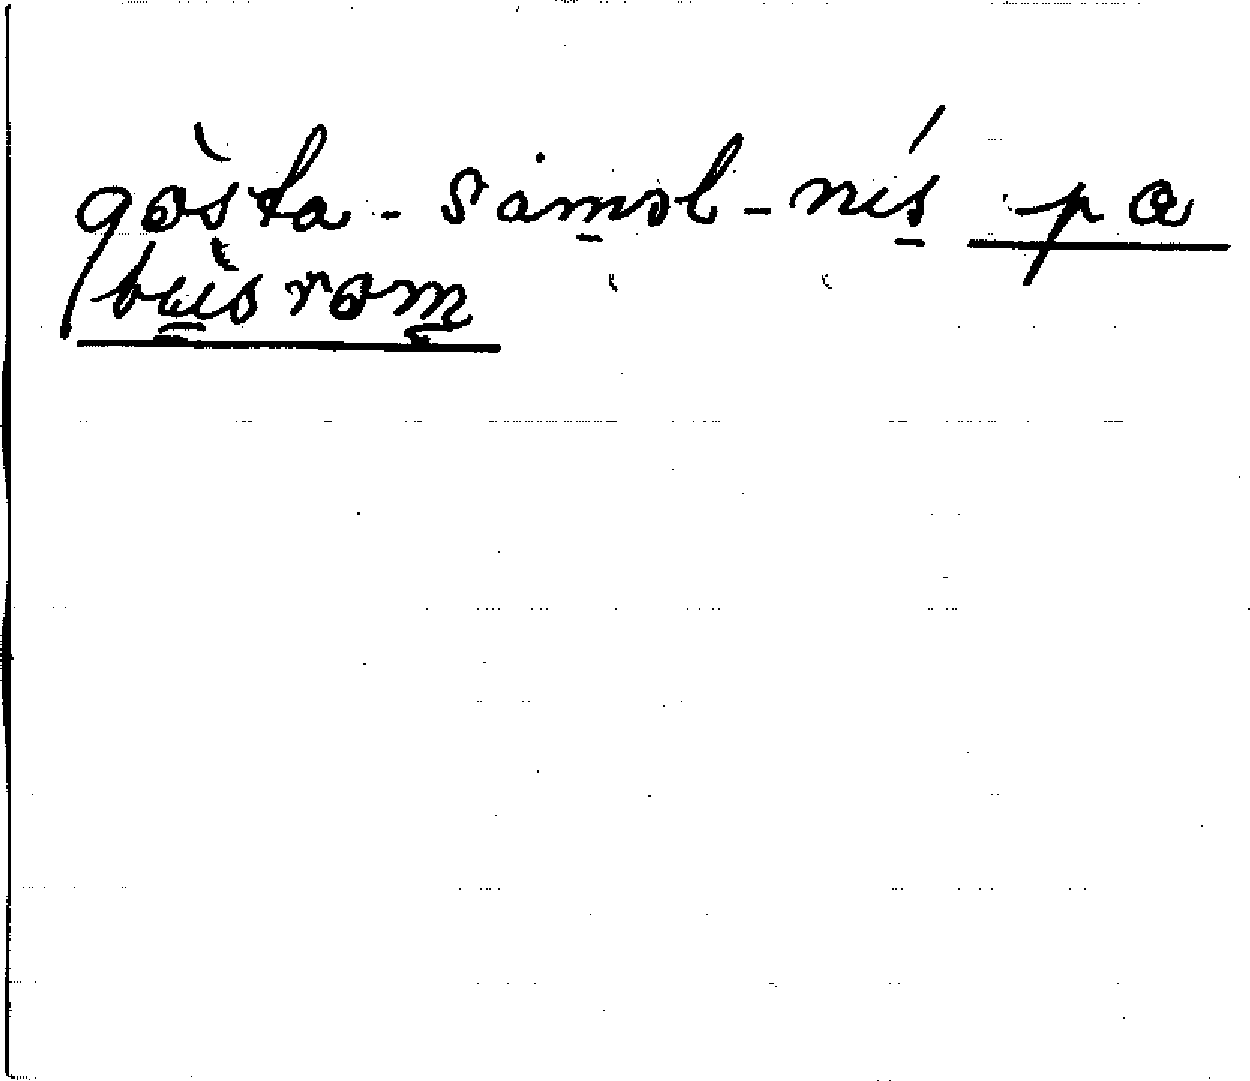 qòsta - sȧm̲ol - nís̲ pa
bu̲ìsrom̲